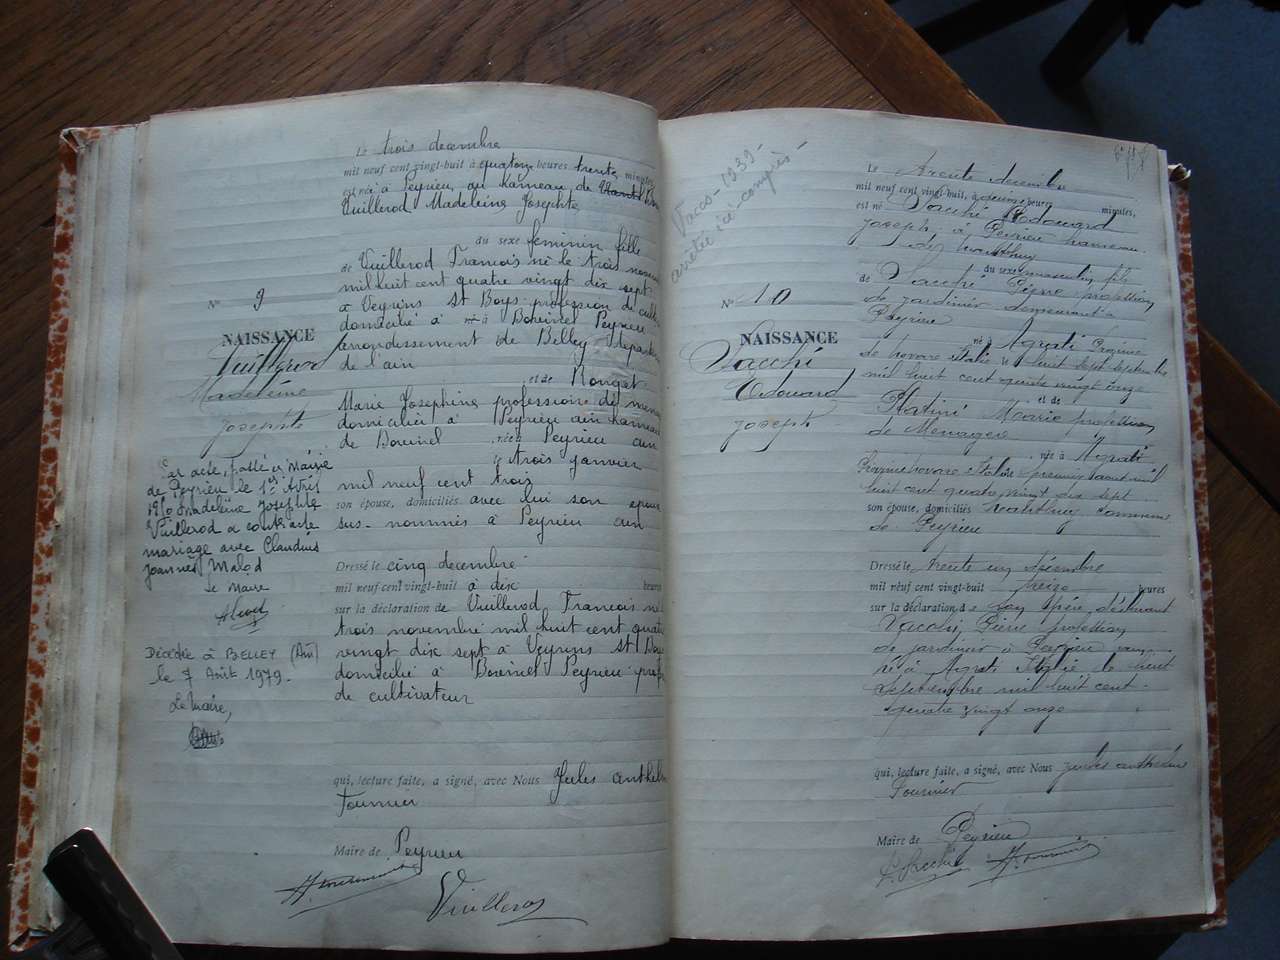 Le trois decembre
mil neuf cent vingt-huit à quatorze heures trente minutes,
est née à Peyrieu, au hameau de
Vuillerod Madeleine Josephte
du sexe feminin fille
de Vuillerod Francois né le trois novem
mil huit cent quatre vingt dix sept
à Veyrins St Boys profession de culti
domicilié à Bovinel Peyrieu
arrondissement de Belley depart
de l'ain
et de Monget
Marie Josephine profession de mena
domiciliée à Peyrieu ain hameau
de Bovinel née à Peyrieu ain
le trois janvier
mil neuf cent trois
son épouse, domiciliés avec lui son epouse
sus-nommés à Peyrieu ain
Dressé le cinq decembre
mil neuf cent vingt-huit à dix heures
sur la déclaration de Vuillerod Francois né
trois novembre mil huit cent quatre
vingt dix sept à Veyrins St Boys
domicilié à Bovinel Peyrieu prof
de cultivateur
qui, lecture faite, a signé, avec Nous Jules anthelm
Tournier
Maire de Peyrieu
Vuillerod
N° 9
NAISSANCE
Vuillerod
Madeleine
Josephte
Par acte, passé en Mairie
de Peyrieu le
Madeleine Josephte
Vuillerod a contracté
mariage avec Claudius
Joannès Malod
Le Maire
Décédée à BELLEY (Ain)
le 7 Août 1979.
Le Maire,
Vaccs - 1939 -
arrêtée ici-compris -
N° 10
NAISSANCE
Sacchi
Edouard
Joseph
Le trente decembre
mil neuf cent vingt-huit, à heures minutes,
est né Sacchi Edouard
Joseph à Peyrieu hameau
de
du sexe masculin, fils
de Sacchi Pierre profession
de jardinier demeurant à
Peyrieu
né à Agrati Province
de Novare Italie le huit septembre
mil huit cent quatre vingt onze
et de
Platini Marie profession
de Menagère
née à Agrati
Province Novare Italie premier aout mil
huit cent quatre vingt dix sept
son épouse, domiciliés commune
de Peyrieu
Dressé le trente un décembre
mil neuf cent vingt-huit treize heures
sur la déclaration de son père, déclarant
Sacchi Pierre profession
de jardinier à Peyrieu ain
né à Agrati Italie le huit
septembre mil huit cent
quatre vingt onze
qui, lecture faite, a signé, avec Nous Jules anthelme
Tournier
Maire de Peyrieu
P. Sacchi